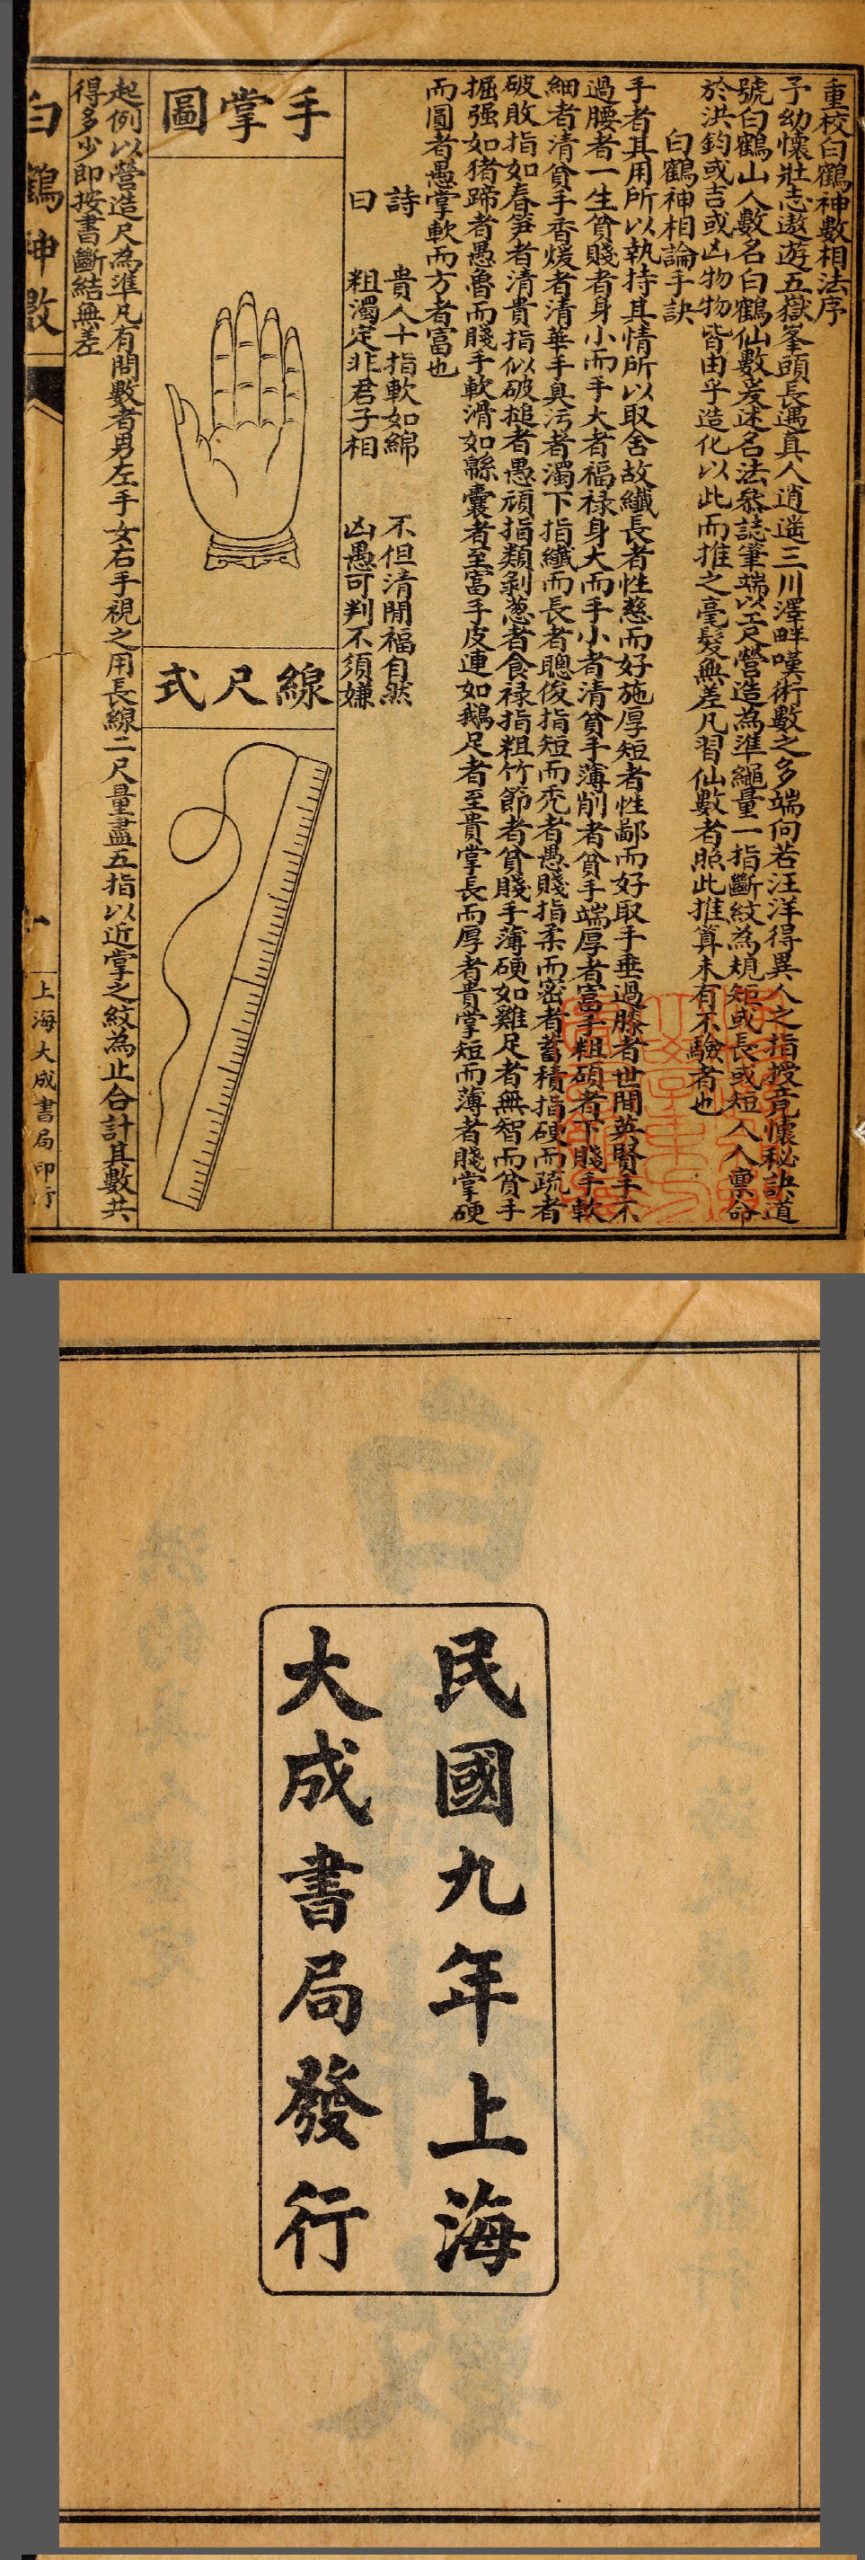 重校白鶴神數相法序
予幼懷壯志遨遊五嶽峯頭長遇真人逍遥三川澤畔嘆術數之多端何若汪洋得異人之指授竟懷秘訣道
號白鶴山人數名白鶴仙數爰述名法叅誌筆端以工尺營造為準繩量一指斷紋為規矩或長或短人人稟命
於洪鈞或吉或凶物物皆由乎造化以此而推之毫髮無差凡習仙數者照此推算未有不驗者也
白鶴神相論手訣
手者其用所以執持其情所以取舍故纖長者性慈而好施厚短者性鄙而好取手垂過膝者世間英賢手不
過腰者一生貧賤者身小而手大者福禄身大而手小者清貧手薄削者貧手端厚者富手粗硬者下賤手軟
細者清貧手香煖者清華手臭污者濁下指纖而長者聰俊指短而秃者愚賤指柔而密者蓄積指硬而疏者
破敗指如春笋者清貴指似破槌者愚頑指類剝葱者食禄指粗竹節者貧賤手薄硬如雞足者無智而貧手
掘强如猪蹄者愚魯而賤手軟滑如緜囊者至富手皮連如鵝足者至貴掌長而厚者貴掌短而薄者賤掌硬
而圓者愚掌軟而方者富也
詩曰
貴人十指軟如綿 不但清閒福自然
粗濁定非君子相 凶愚可判不須嫌
手掌圖
線尺式
起例以營造尺為準凡有問數者男左手女右手視之用長線二尺量盡五指以近掌之紋為止合計其數共
得多少即按書斷結無差
白鶴神數
一
上海大成書局印行
民國九年上海
大成書局發行